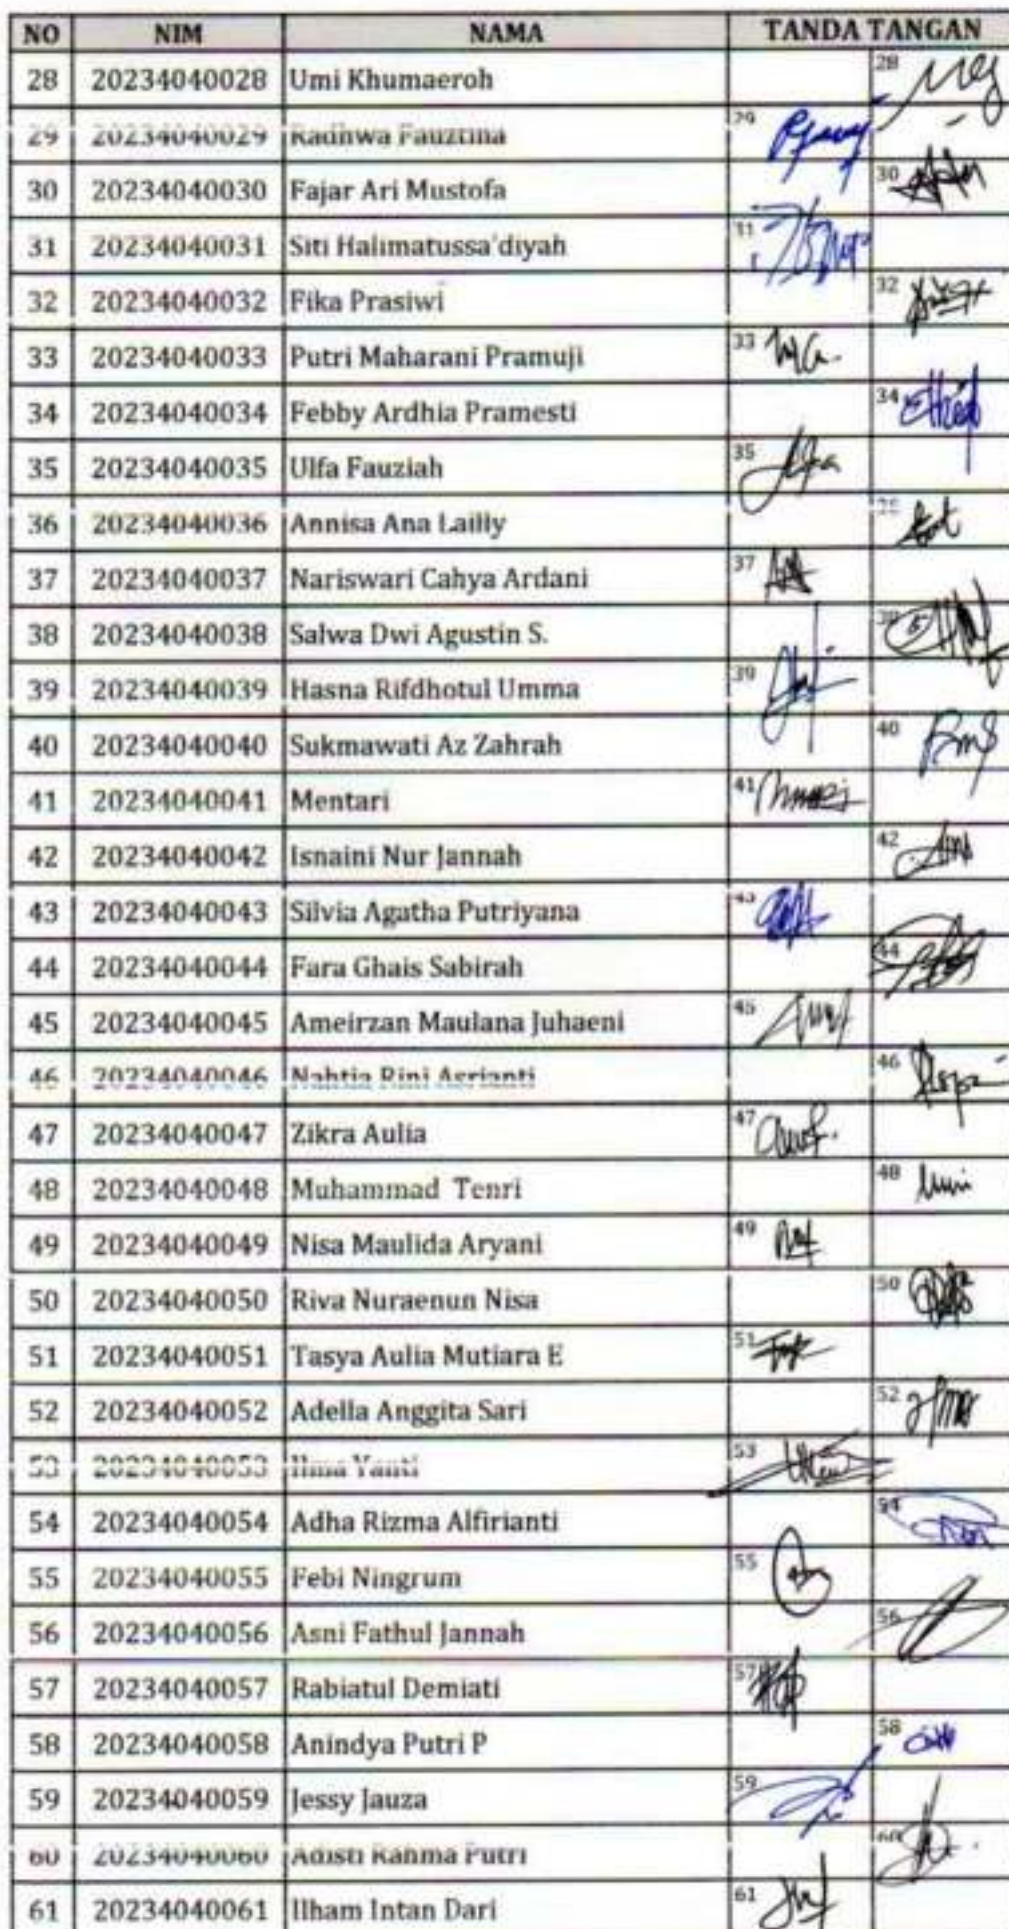 NO NIM NAMA TANDA TANGAN
28 20234040028 Umi Khumaeroh 28
29 20234040029 Radhwa Fauztina 29
30 20234040030 Fajar Ari Mustofa 30
31 20234040031 Siti Halimatussa'diyah 31
32 20234040032 Fika Prasiwi 32
33 20234040033 Putri Maharani Pramuji 33
34 20234040034 Febby Ardhia Pramesti 34
35 20234040035 Ulfa Fauziah 35
36 20234040036 Annisa Ana Lailly
37 20234040037 Nariswari Cahya Ardani 37
38 20234040038 Salwa Dwi Agustin S. 38
39 20234040039 Hasna Rifdhotul Umma 39
40 20234040040 Sukmawati Az Zahrah 40
41 20234040041 Mentari 41
42 20234040042 Isnaini Nur Jannah 42
43 20234040043 Silvia Agatha Putriyana 43
44 20234040044 Fara Ghais Sabirah 44
45 20234040045 Ameirzan Maulana Juhaeni 45
46 20234040046 Rini Asrianti 46
47 20234040047 Zikra Aulia 47
48 20234040048 Muhammad Tenri 48
49 20234040049 Nisa Maulida Aryani 49
50 20234040050 Riva Nuraenun Nisa 50
51 20234040051 Tasya Aulia Mutiara E 51
52 20234040052 Adella Anggita Sari 52
53 20234040053 Yanti 53
54 20234040054 Adha Rizma Alfirianti 54
55 20234040055 Febi Ningrum 55
56 20234040056 Asni Fathul Jannah 56
57 20234040057 Rabiatul Demiati 57
58 20234040058 Anindya Putri P 58
59 20234040059 Jessy Jauza 59
60 20234040060 Adisti Rahma Putri 60
61 20234040061 Ilham Intan Dari 61